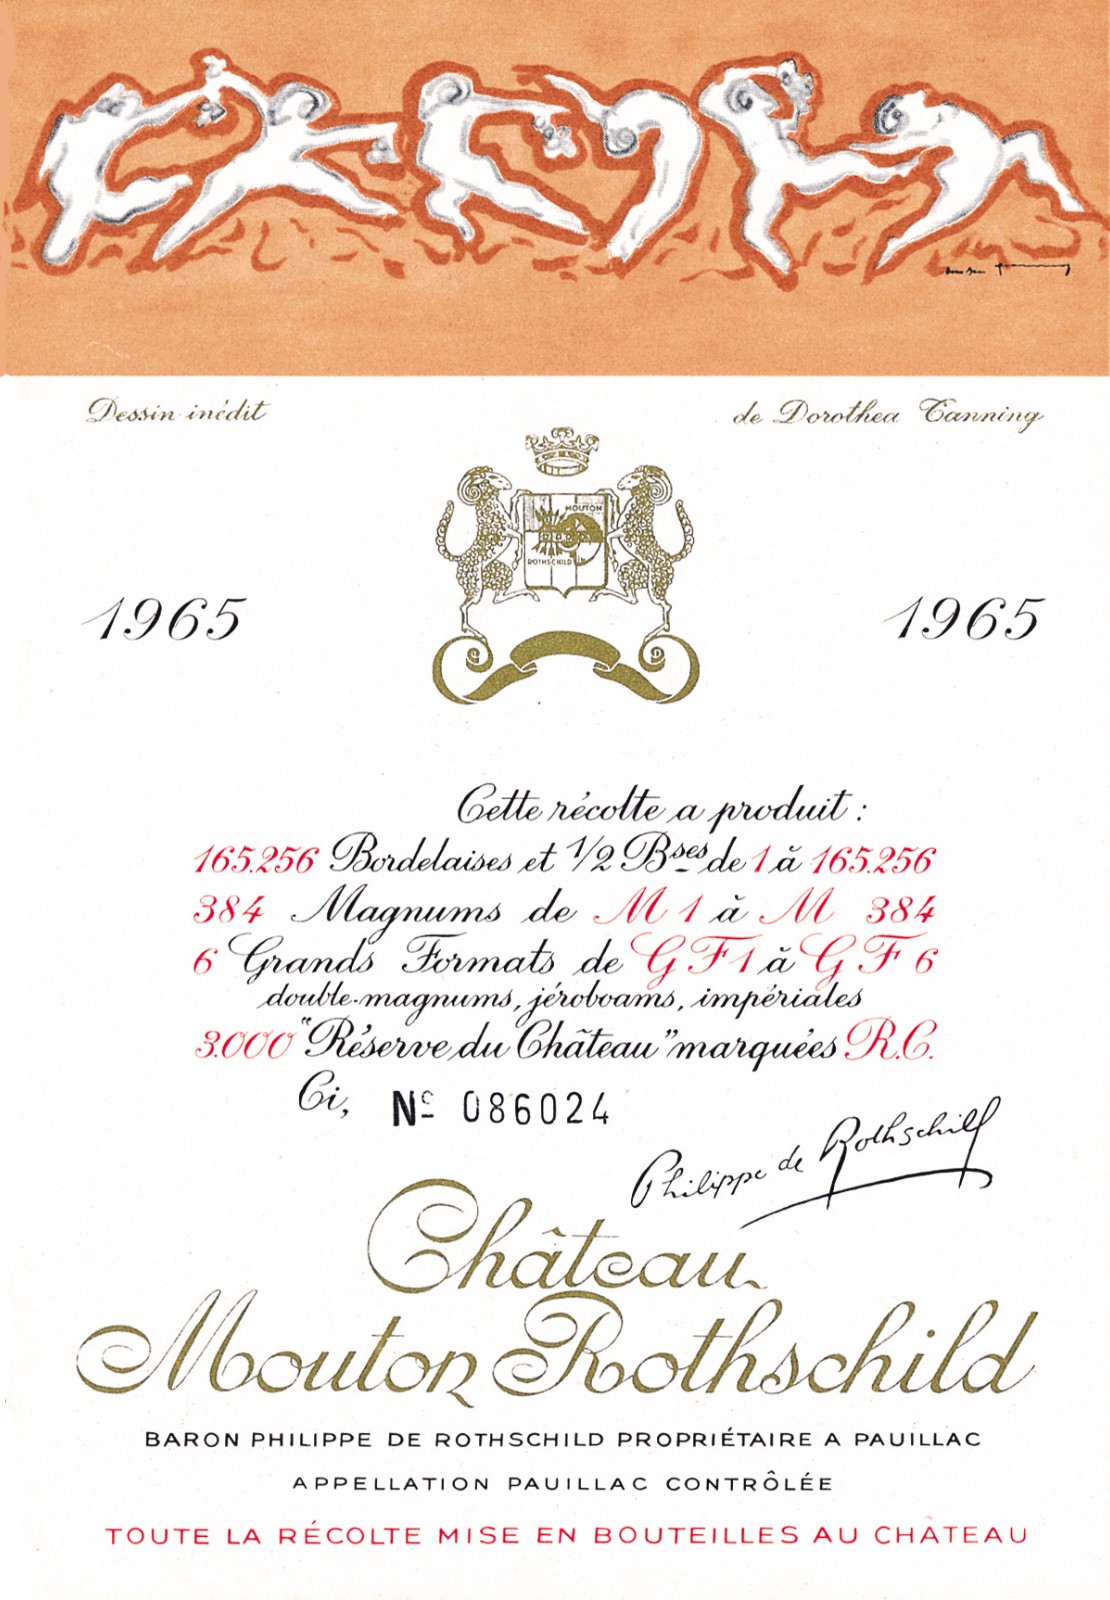 Dessin inédit de Dorothea Tanning
MOUTON
ROTHSCHILD
1965 1965
Cette récolte a produit :
165.256 Bordelaises et 1/2 Bses de 1 à 165.256
384 Magnums de M 1 à M 384
6 Grands Formats de GF 1 à GF 6
double-magnums, jéroboams, impériales
3.000 "Réserve du Château" marquées R.C.
Ci, No 086024
Philippe de Rothschild
Château
Mouton Rothschild
BARON PHILIPPE DE ROTHSCHILD PROPRIÉTAIRE A PAUILLAC
APPELLATION PAUILLAC CONTRÔLÉE
TOUTE LA RÉCOLTE MISE EN BOUTEILLES AU CHÂTEAU